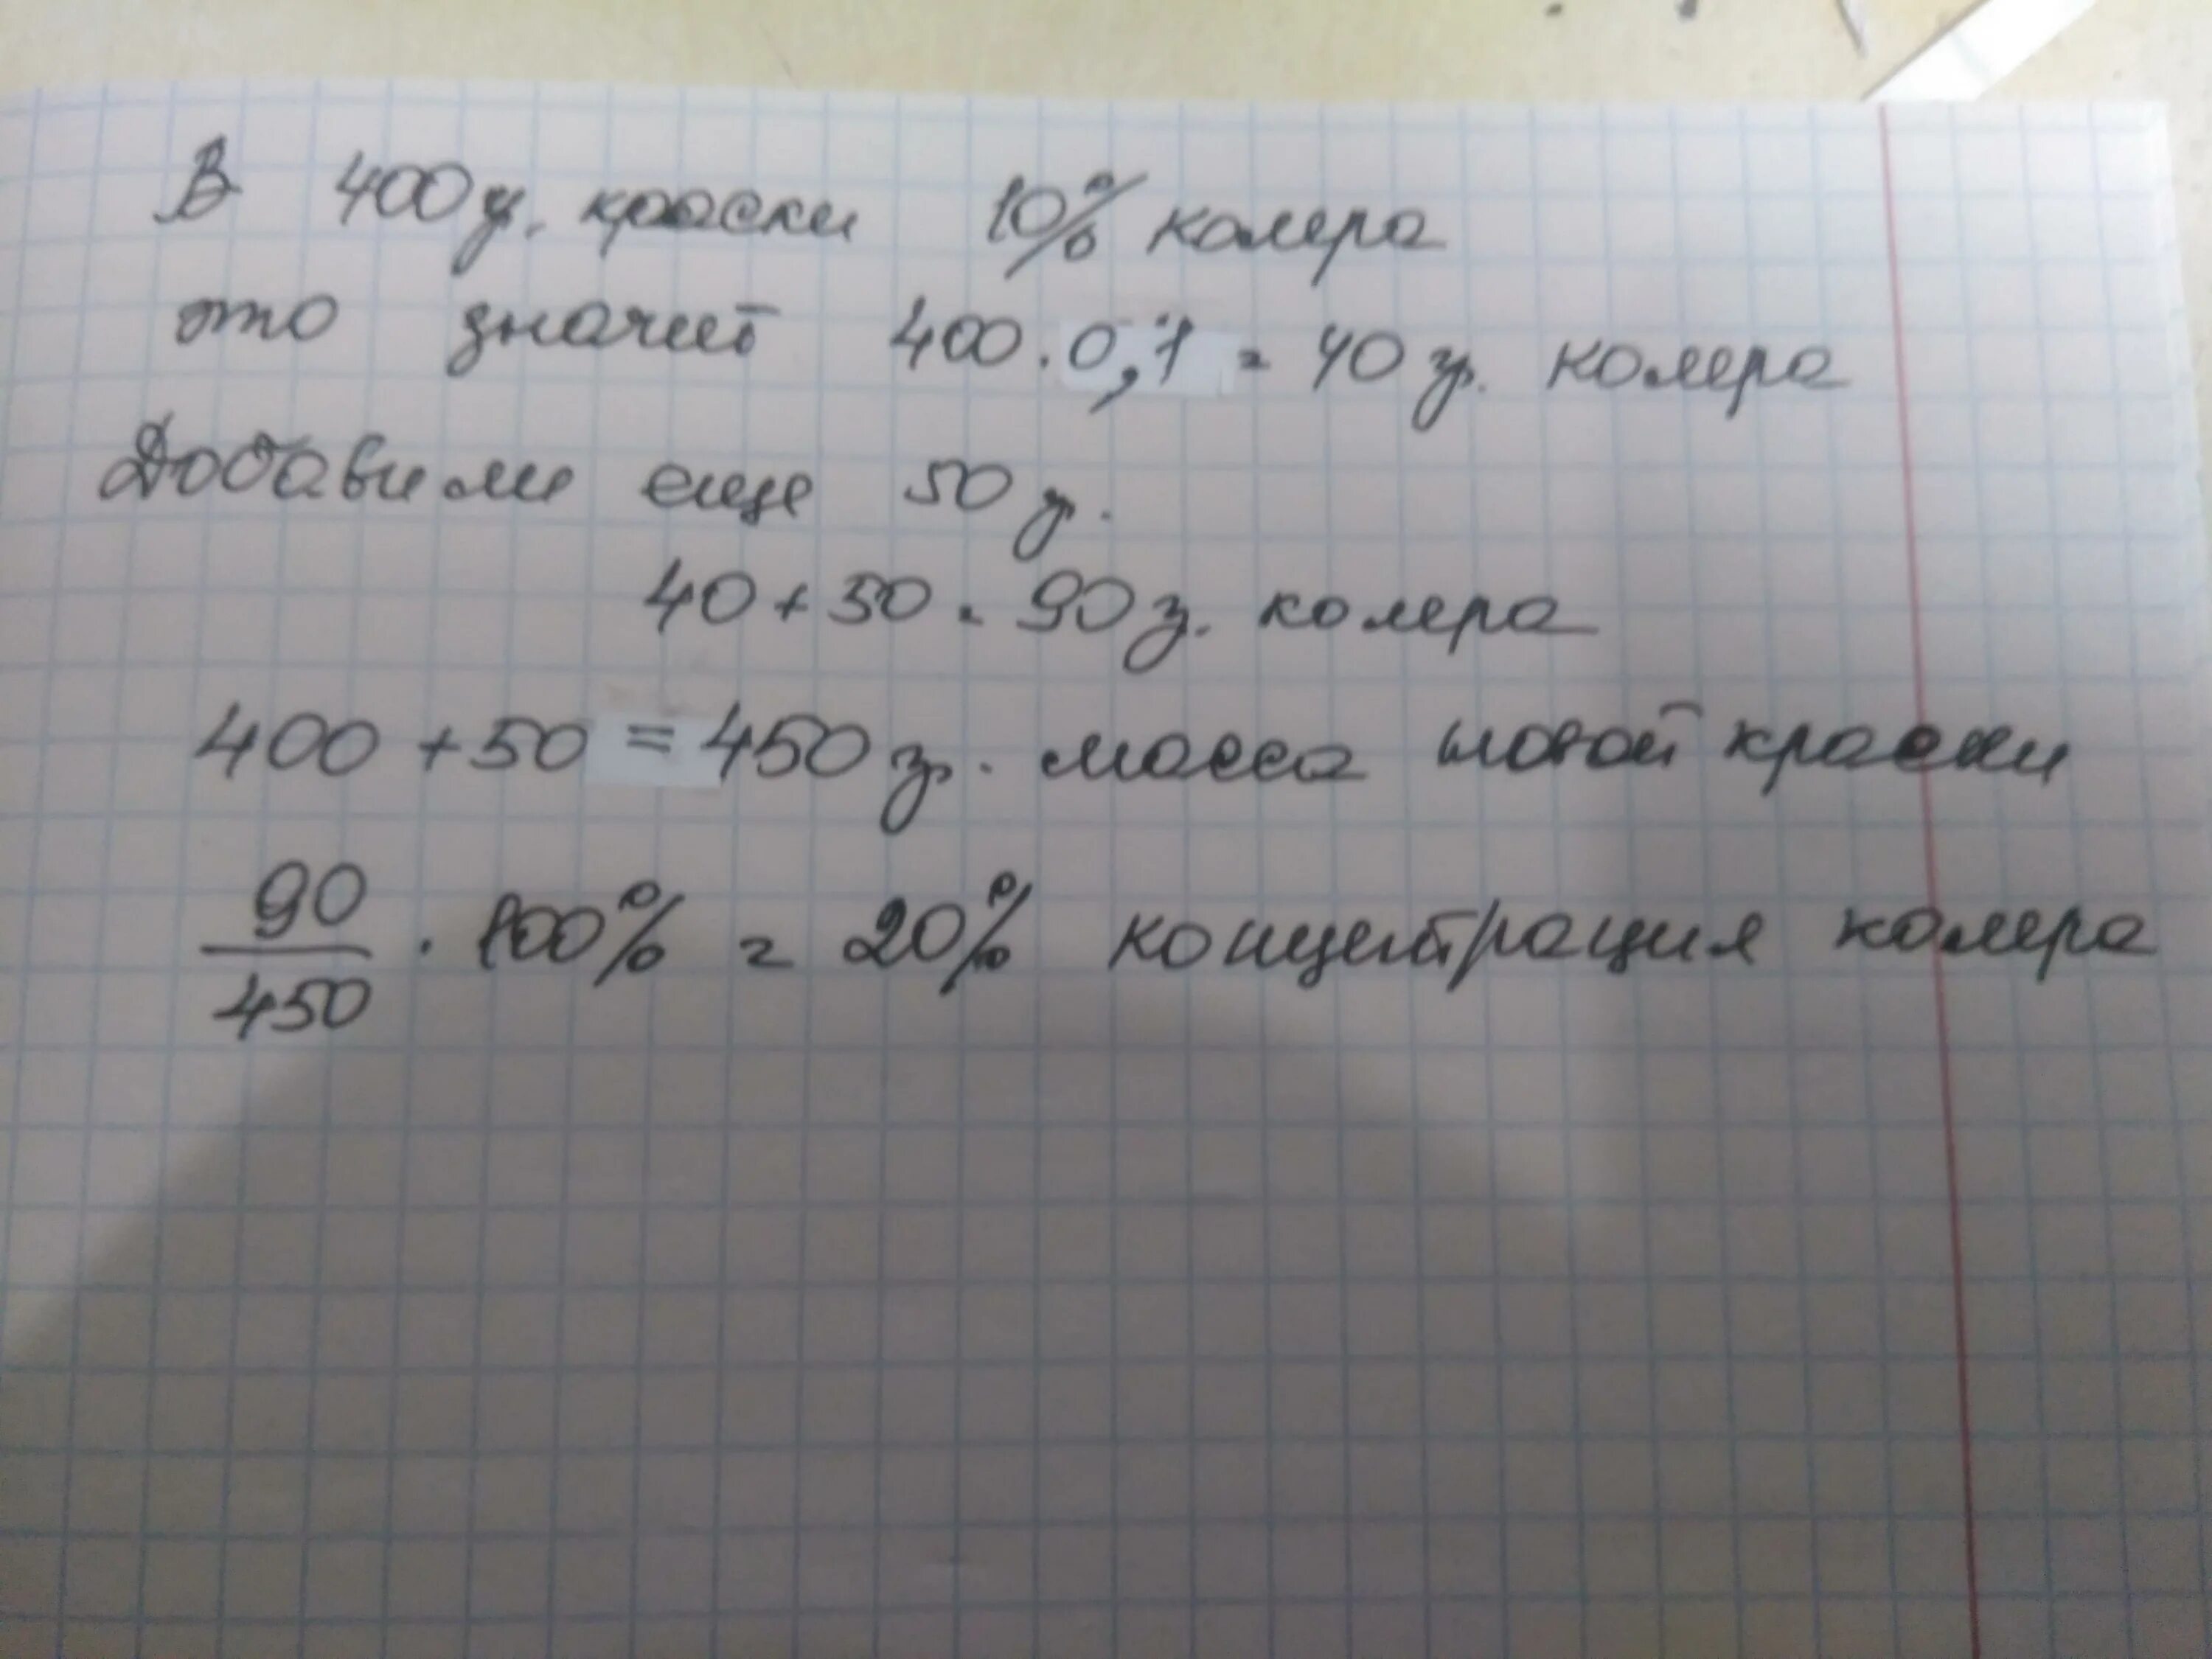 В 400 г. краски 10% колера
это значит 400 · 0,1 = 40 гр. колера
Добавили еще 50 г.
40 + 50 = 90 г. колера
400 + 50 = 450 гр. масса новой краски
90/450 · 100% = 20% концентрация колера